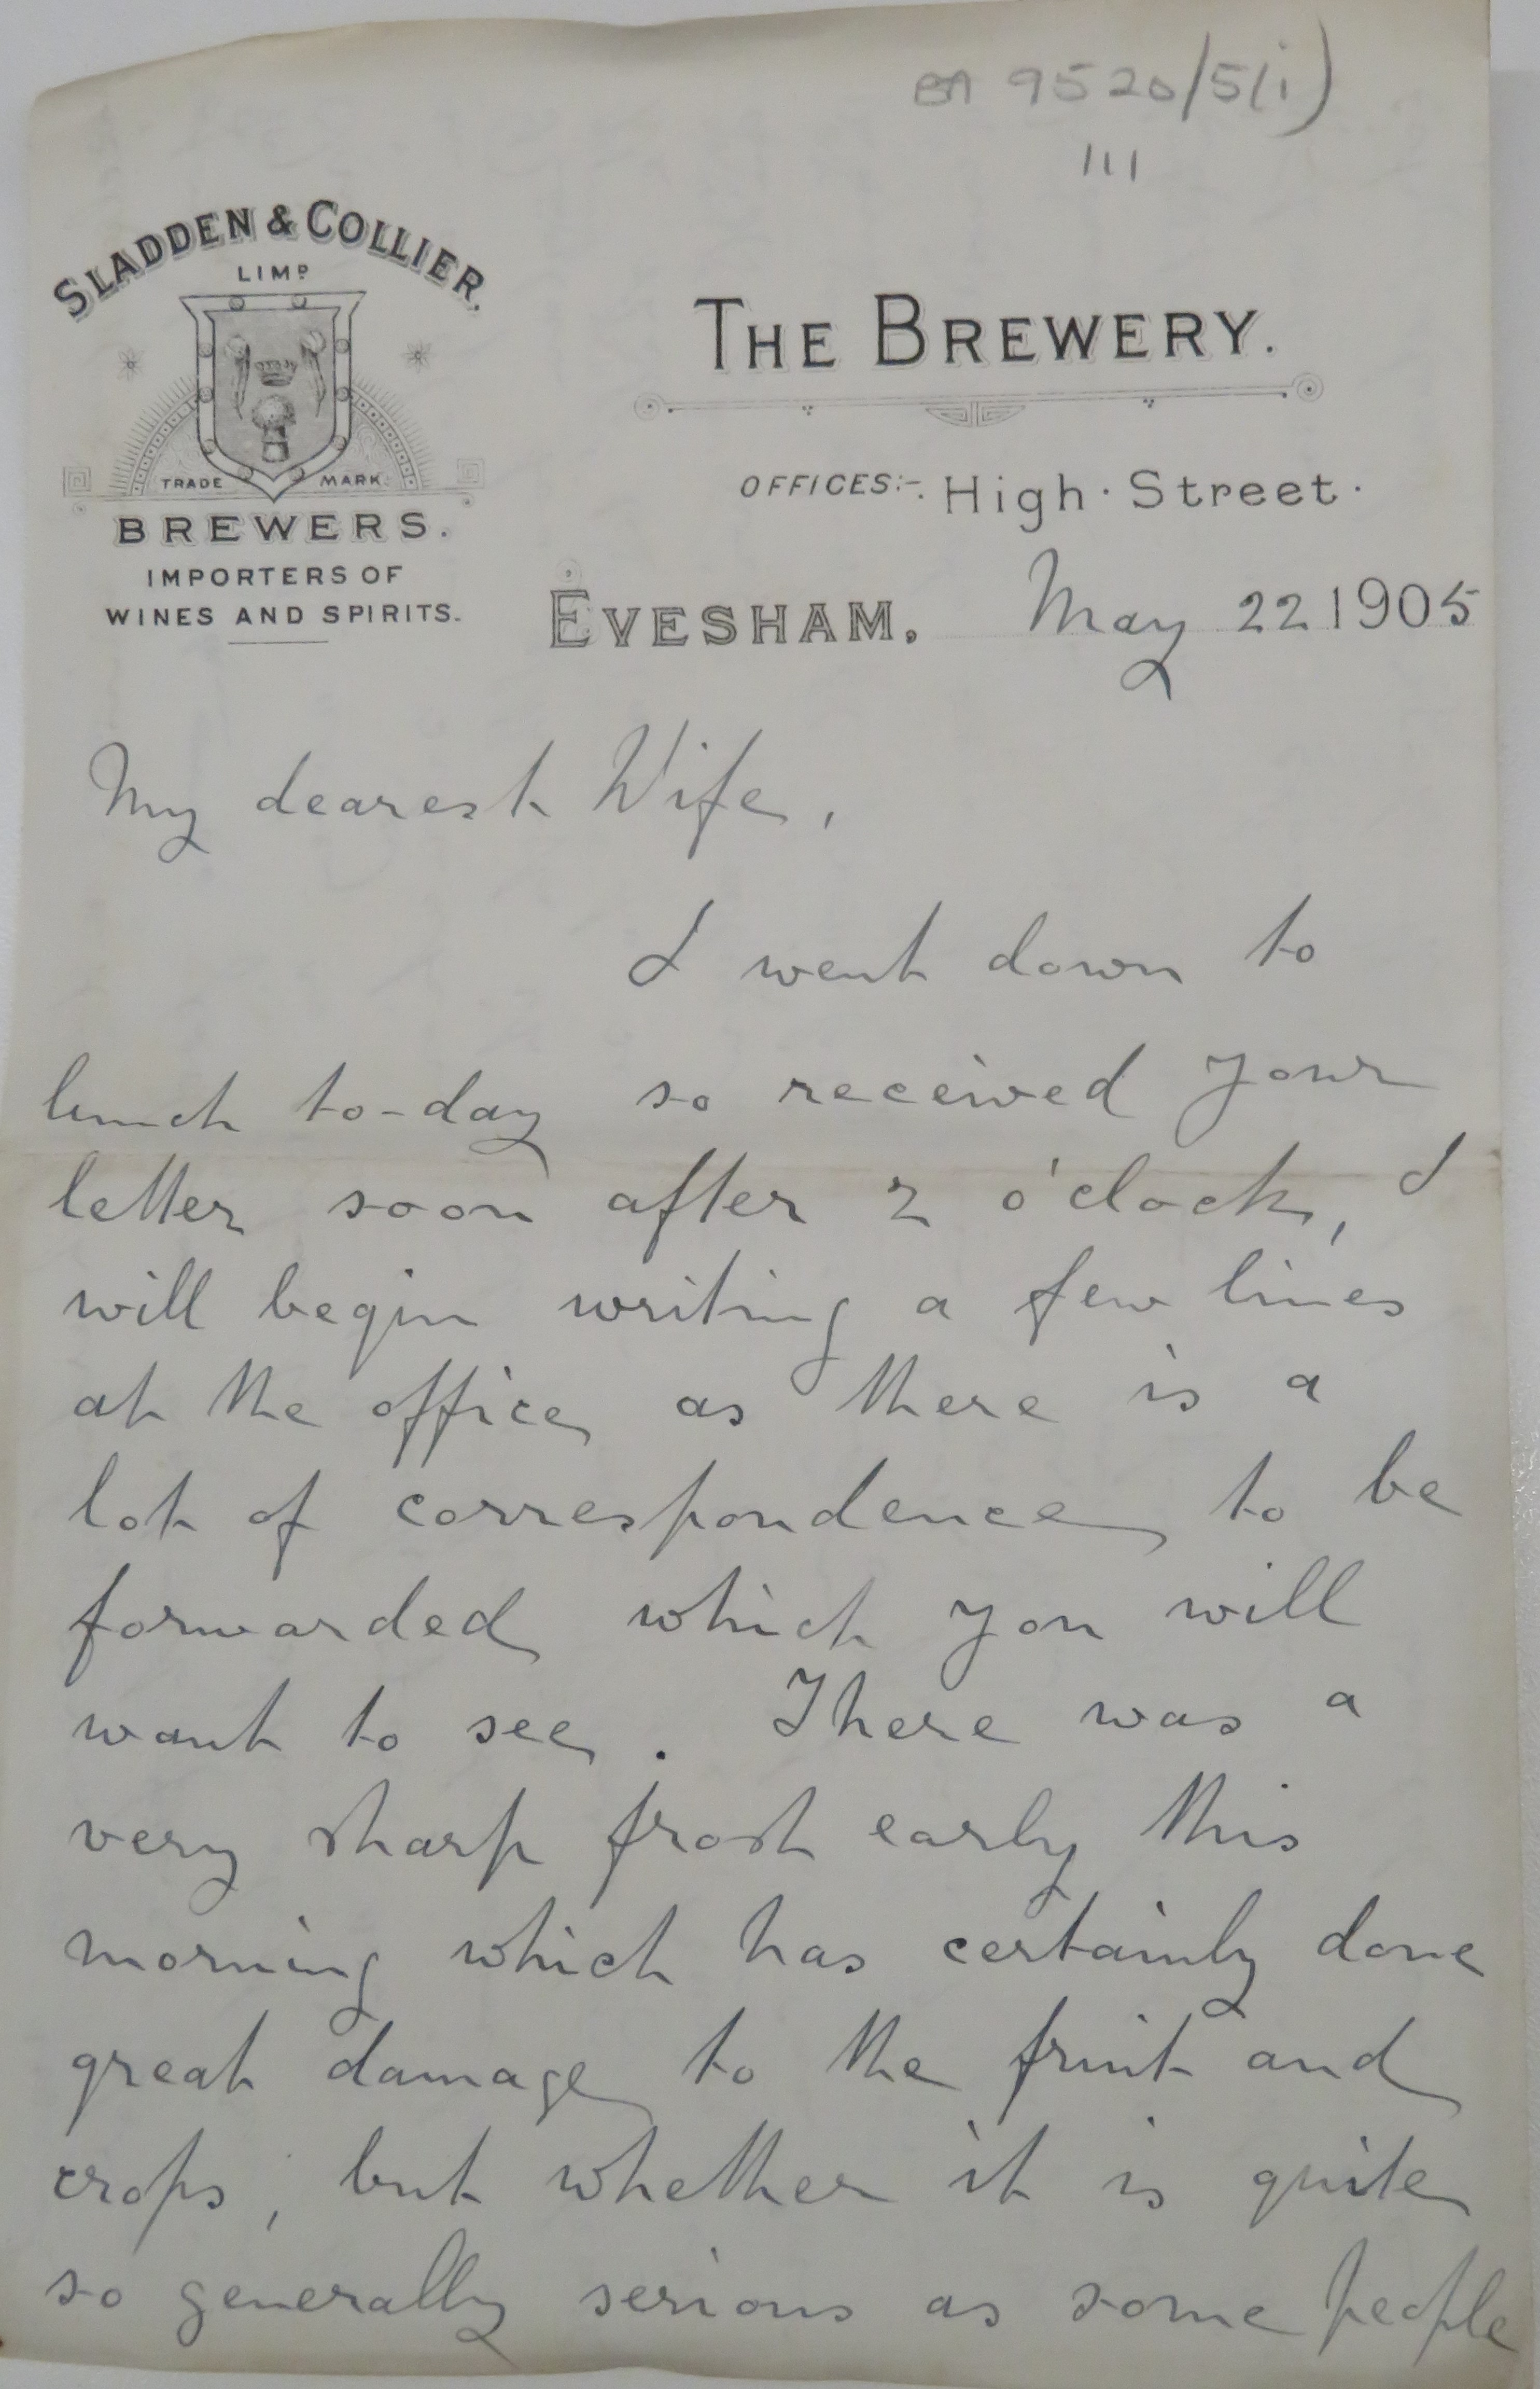 BA 9520/5(i)
111
SLADDEN & COLLIER.
LIMD
TRADE MARK.
BREWERS.
IMPORTERS OF
WINES AND SPIRITS.
THE BREWERY.
OFFICES:-. High Street.
EVESHAM. May 22 1905
My dearest Wife,
I went down to
lunch to-day so received your
letter soon after 2 o'clock, I
will begin writing a few lines
at the office as there is a
lot of correspondence to be
forwarded which you will
want to see. There was a
very sharp frost early this
morning which has certainly done
great damage to the fruit and
crops, but whether it is quite
so generally serious as some people